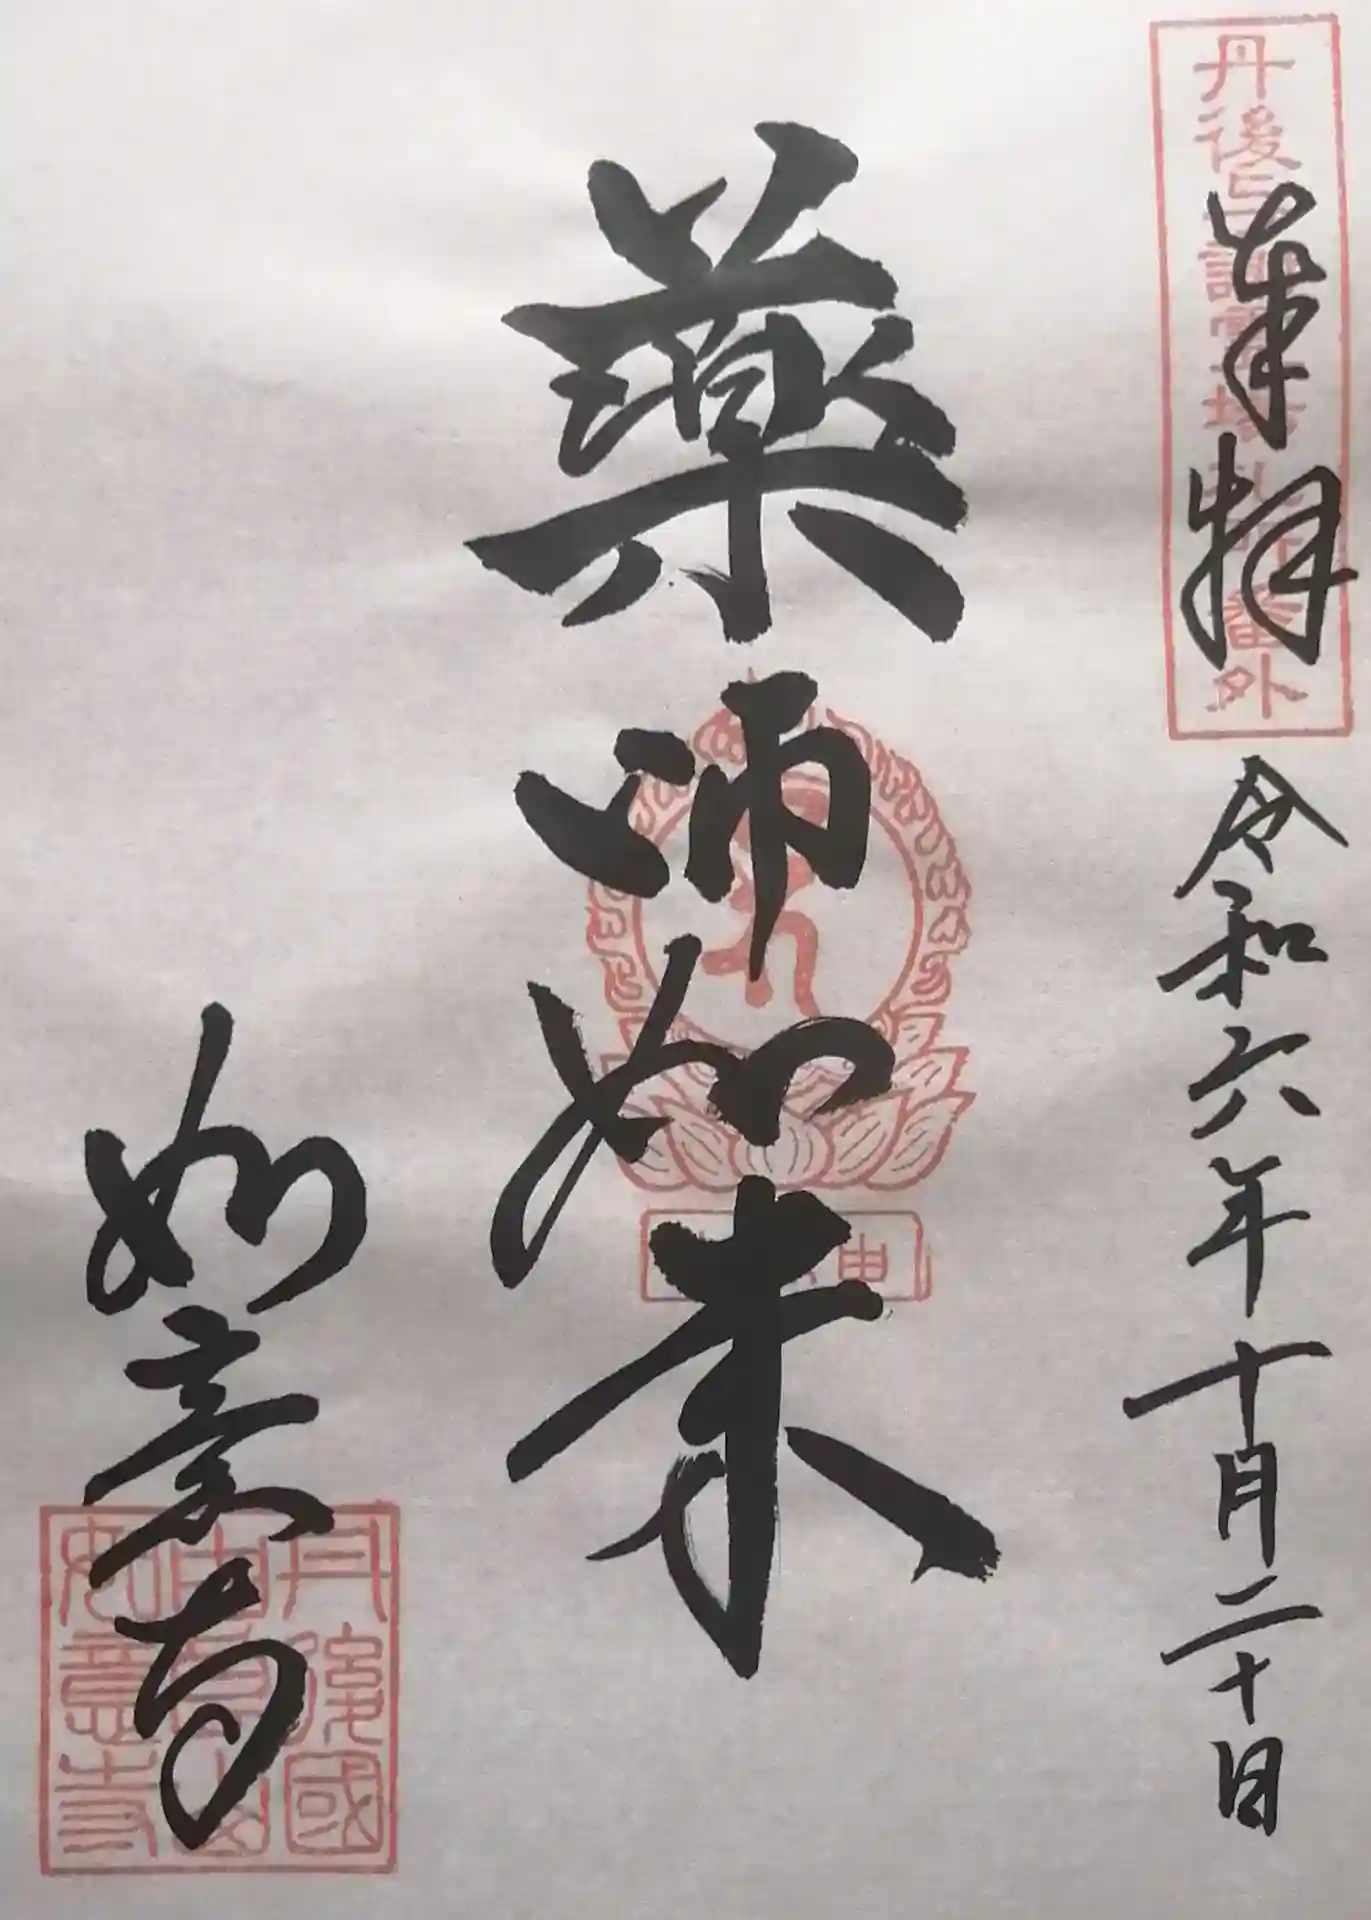 奉拝
令和六年十月二十日
薬师如来
如意寺
丹後國
如意寺